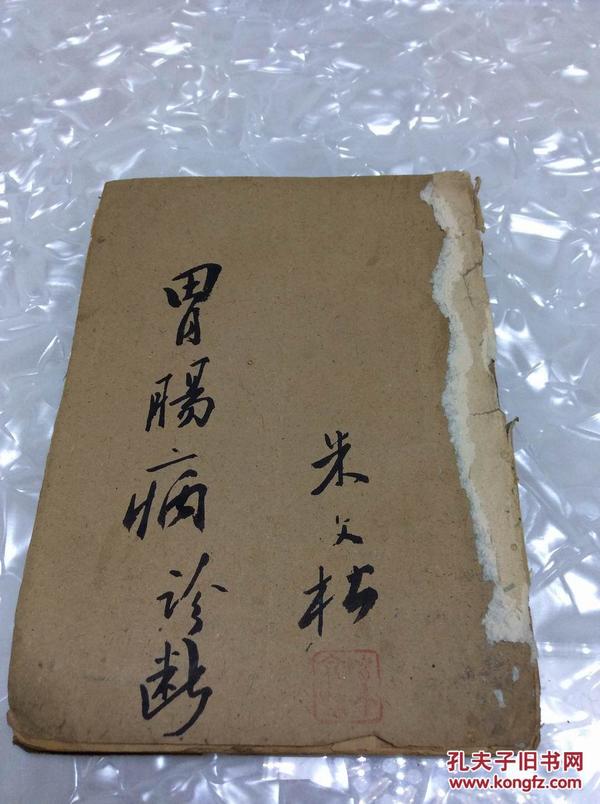 胃腸病診断
朱文
孔夫子旧书网
www.kongfz.com